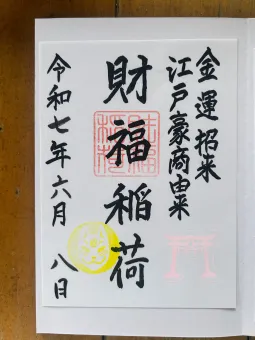 金運招来
江戸豪商由来
財福稲荷
令和七年六月八日